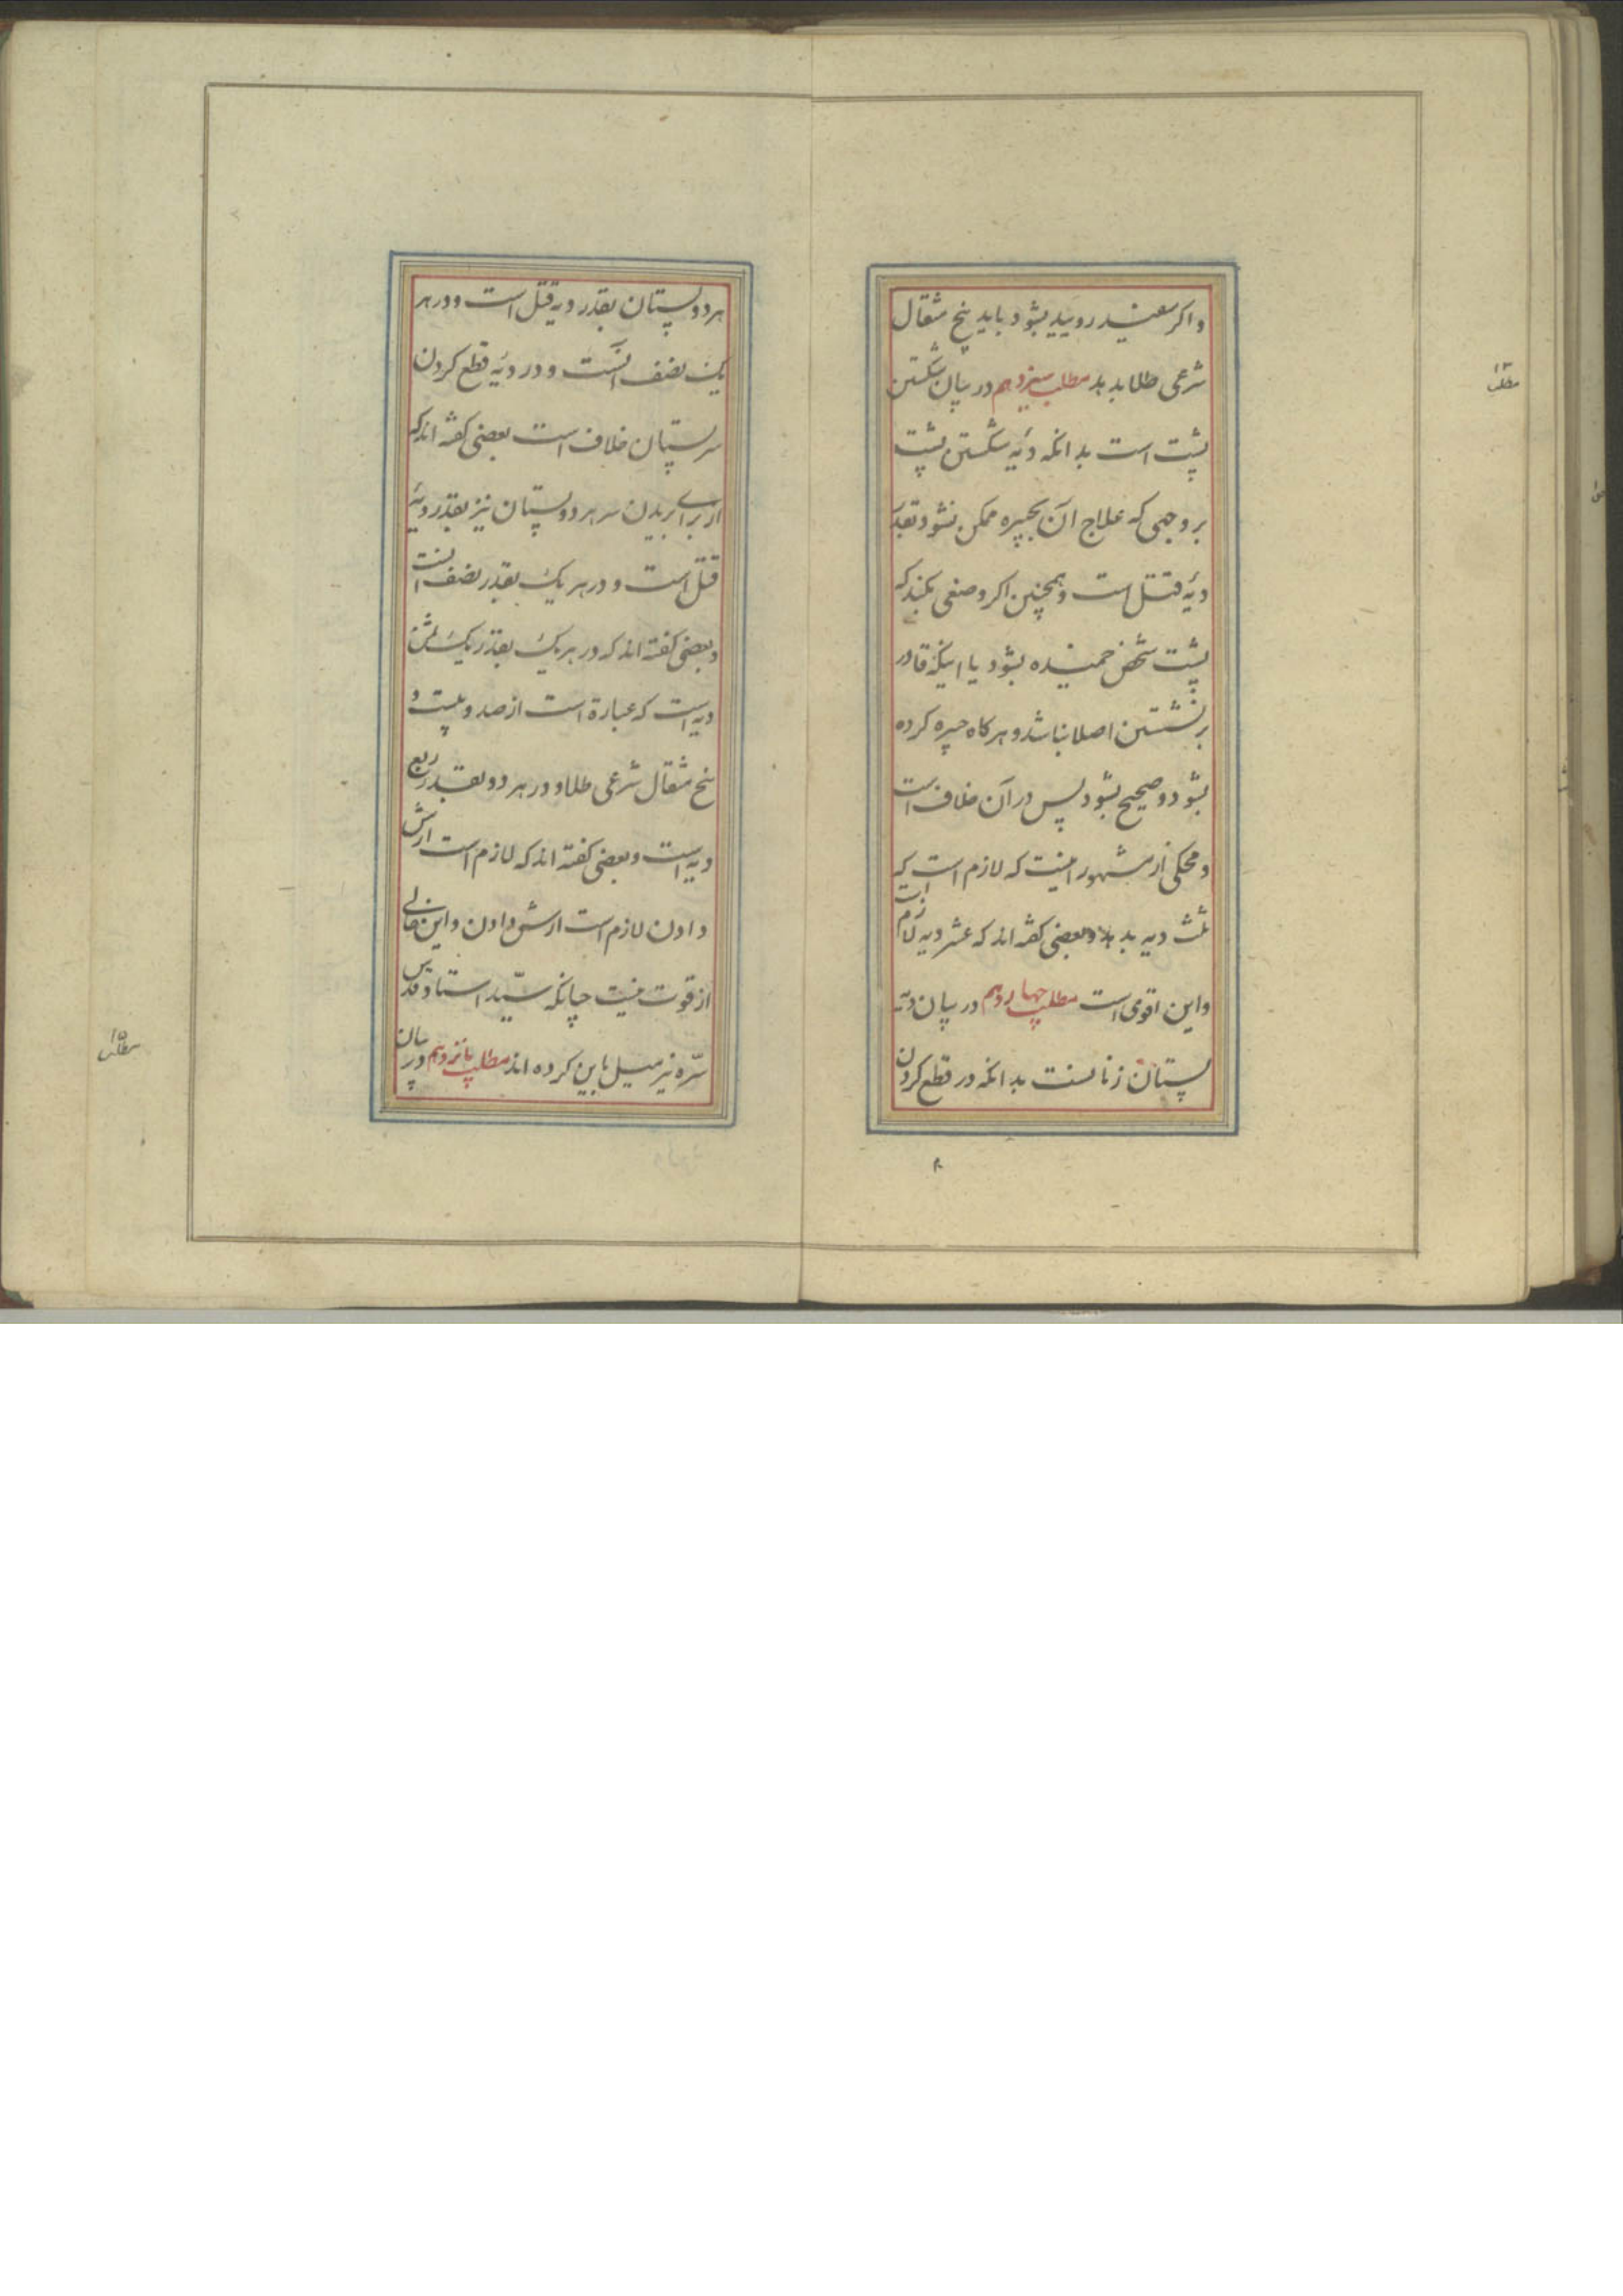 و اکر سفید روییده بشود باید پنج مثقال
شرعی طلا بدهد مطلب سیزدهم در بیان شکستن
پشت است بدانکه دیهٔ شکستن پشت
بر وجهی که علاج آن بجبیره ممکن نشود بقدر
دیهٔ قتل است و همچنین اکر وصفی بکند که
پشت شخص خمیده بشود یا اینکه قادر
بر نشستن اصلا نباشد و هرکاه جبیره کرده
بشود و صحیح بشود پس در آن خلاف است
و محکی از مشهور اینست که لازم است که
ثلث دیه بدهد و بعضی کفته اند که عشر دیه لازم است
و این اقوی است مطلب چهاردهم در بیان دیه
پستان زنانست بدانکه در قطع کردن
مطلب ۱۳
هر دو پستان بقدر دیه قتل است و در هر
یک نصف آنست و در دیهٔ قطع کردن
سر پستان خلاف است بعضی کفته اند که
از برای بریدن سر هر دو پستان نیز بقدر دیهٔ
قتل است و در هر یک بقدر نصف آنست
و بعضی کفته اند که در هر یک بقدر یک ثمن
دیه است که عبارة است از صد و بیست و
پنج مثقال شرعی طلا و در هر دو بقدر ربع
دیه است و بعضی کفته اند که لازم است ارش
دادن لازم است ارش دادن و این خالی
از قوت نیست چنانکه سیّد استاد قدس
سرّه نیز میل باین کرده اند مطلب پانزدهم در بیان
مطلب ۱۵